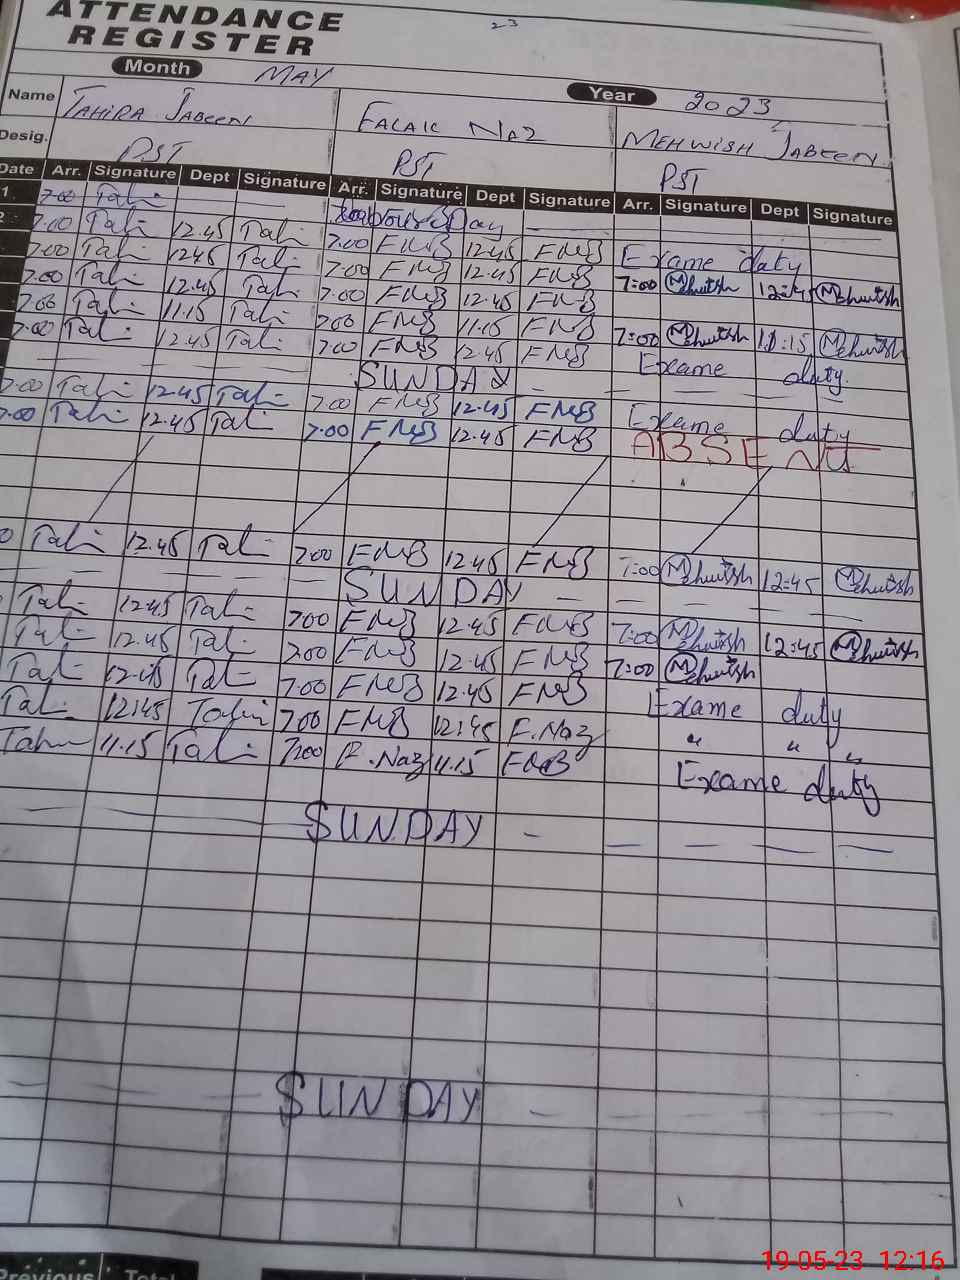 ATTENDANCE
REGISTER
23
Month MAY Year 2023
Name TAHIRA JABEEN FALAK NAZ MEHWISH JABEEN
Desig. PST PST PST
Date Arr. Signature Dept Signature Arr. Signature Dept Signature Arr. Signature Dept Signature
1 7.00 Tah Labours Day
2 7.00 Tah 12.45 Tah 7.00 FNB 12.45 FNB Exame duty
7.00 Tah 12.45 Tah 7.00 FNB 12.45 FNB 7:00 Mehwish 12:45 Mehwish
7.00 Tah 12.45 Tah 7.00 FNB 12.45 FNB
7.00 Tah 11.15 Tah 7.00 FNB 11.15 FNB 7:00 Mehwish 11:15 Mehwish
7.00 Tah 12.45 Tah 7.00 FNB 12.45 FNB Exame duty
SUNDAY
7.00 Tah 12.45 Tah 7.00 FNB 12.45 FNB Exame duty
7.00 Tah 12.45 Tah 7.00 FNB 12.45 FNB ABSENT
0 Tah 12.45 Tah 7.00 FNB 12.45 FNB 7:00 Mehwish 12:45 Mehwish
SUNDAY
Tah 12.45 Tah 7.00 FNB 12.45 FNB 7:00 Mehwish 12:45 Mehwish
Tah 12.45 Tah 7.00 FNB 12.45 FNB 7:00 Mehwish
Tah 12.45 Tah 7.00 FNB 12.45 FNB Exame duty
Tah 12:45 Tahir 7.00 FNB 12:45 F.Naz " " "
Tahir 11.15 Tah 7.00 F.Naz 11.15 FNB Exame duty
SUNDAY
SUNDAY
Previous Total
19-05-23 12:16